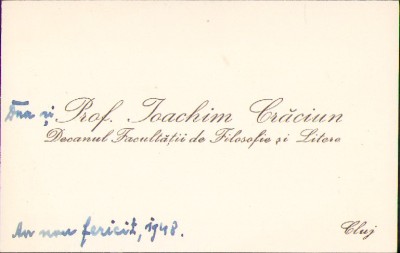 Dna și Prof. Ioachim Crăciun
Decanul Facultății de Filosofie și Litere
An nou fericit, 1948.
Cluj